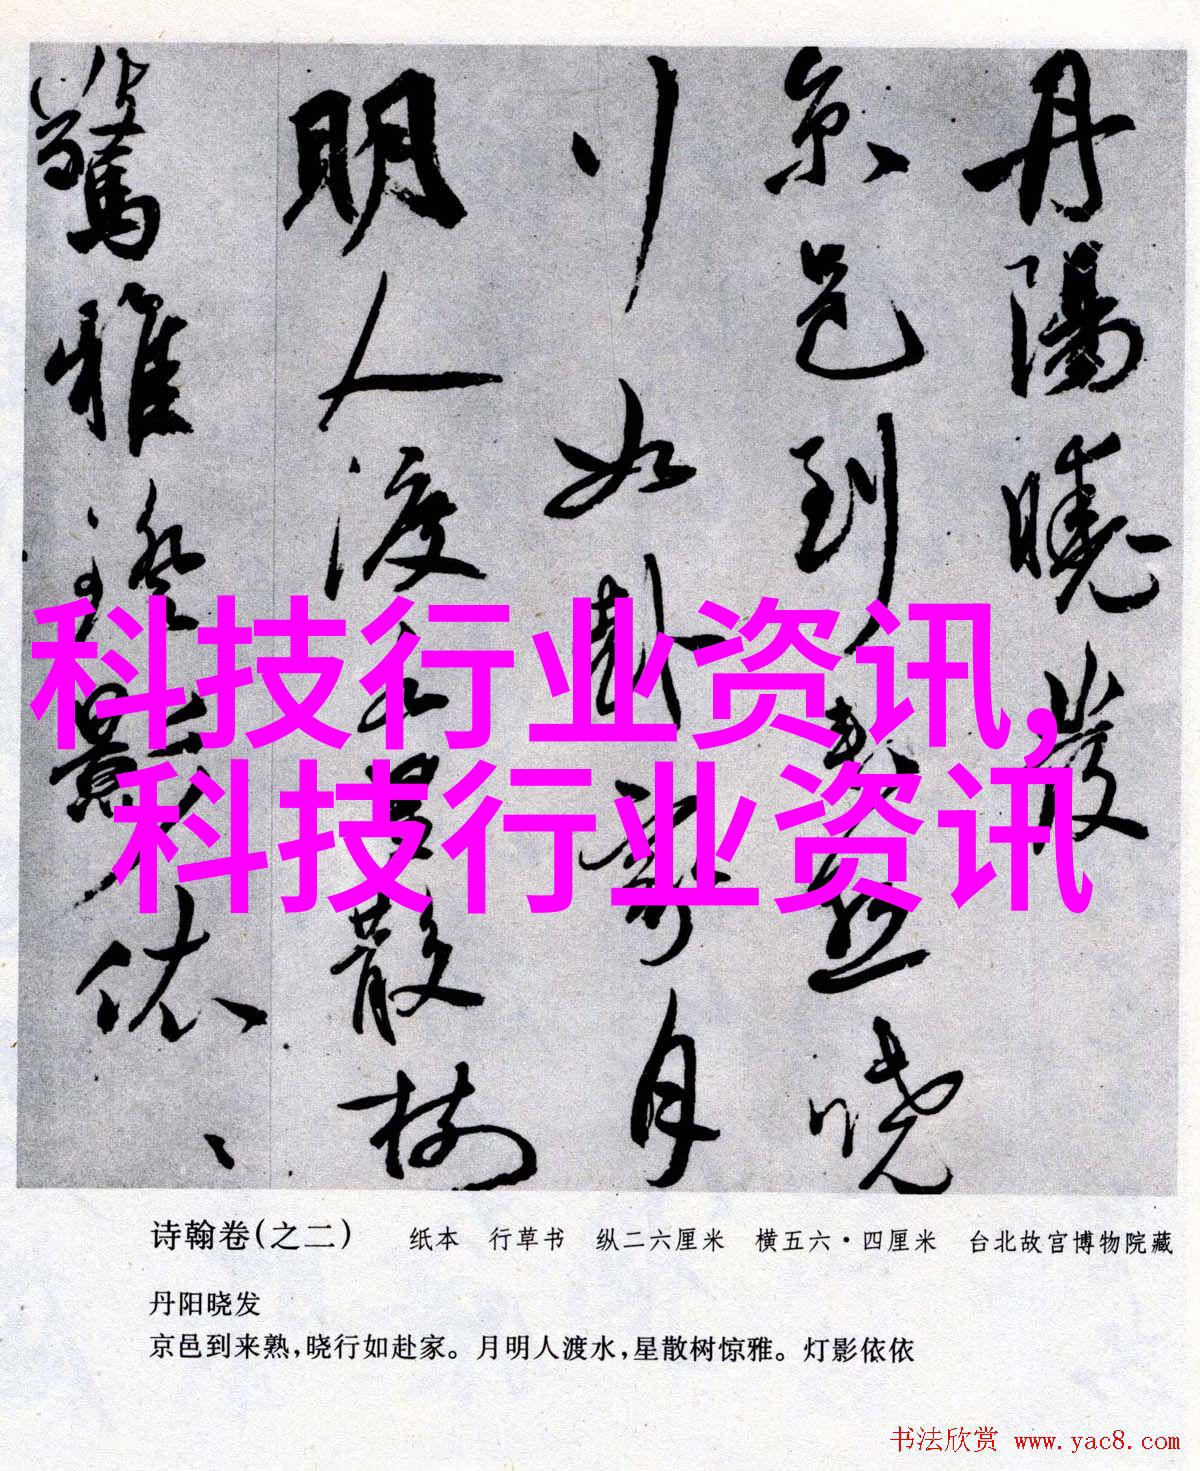 丹陽曉發
京邑到来熟晓
行如赴家月
明人渡水星散樹
驚雅燈影依、、
科技行业资讯,
科技行业资讯
诗翰卷(之二) 纸本 行草书 纵二六厘米 横五六·四厘米 台北故宫博物院藏
丹阳晓发
京邑到来熟,晓行如赴家。月明人渡水,星散树惊雅。灯影依依
书法欣赏 www.yac8.com